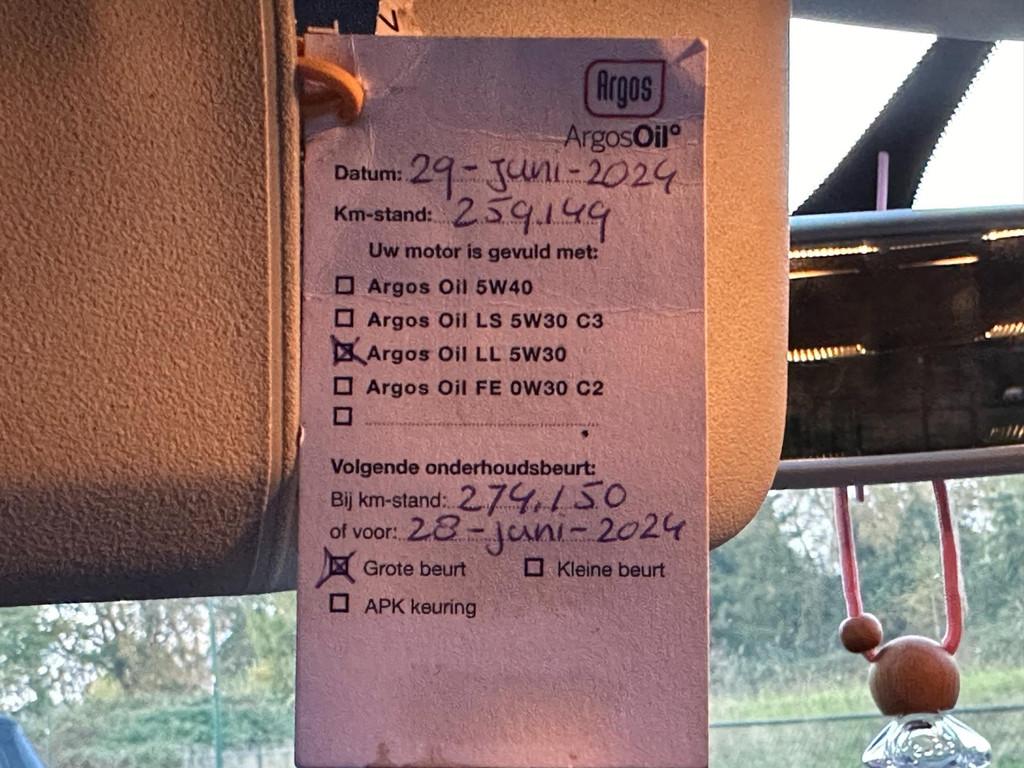 Argos
ArgosOil°
Datum: 29-juni-2024
Km-stand: 259.149
Uw motor is gevuld met:
Argos Oil 5W40
Argos Oil LS 5W30 C3
Argos Oil LL 5W30
Argos Oil FE 0W30 C2
Volgende onderhoudsbeurt:
Bij km-stand: 274.150
of voor: 28-juni-2024
Grote beurt Kleine beurt
APK keuring